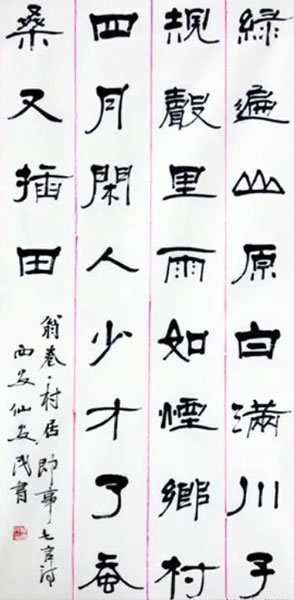 綠遍山原白滿川子
規聲里雨如煙鄉村
四月閑人少才了蚕
桑又插田
翁卷·村居即事七言诗
西安仙安民書